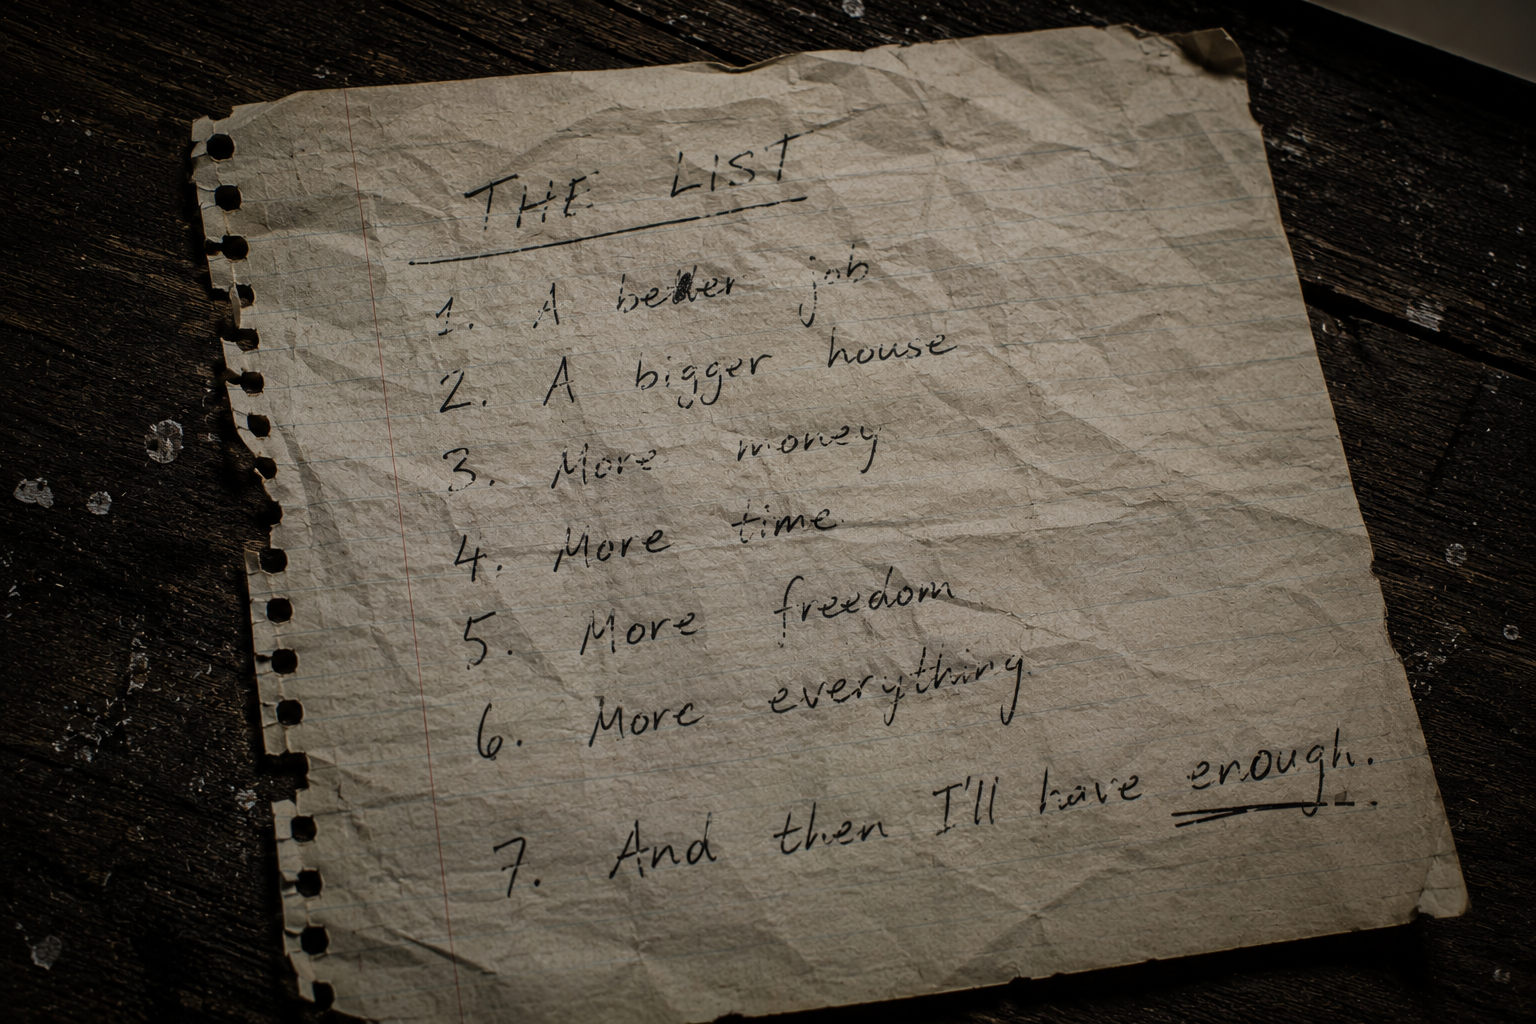 THE LIST
1. A better job
2. A bigger house
3. More money
4. More time
5. More freedom
6. More everything
7. And then I'll have enough.